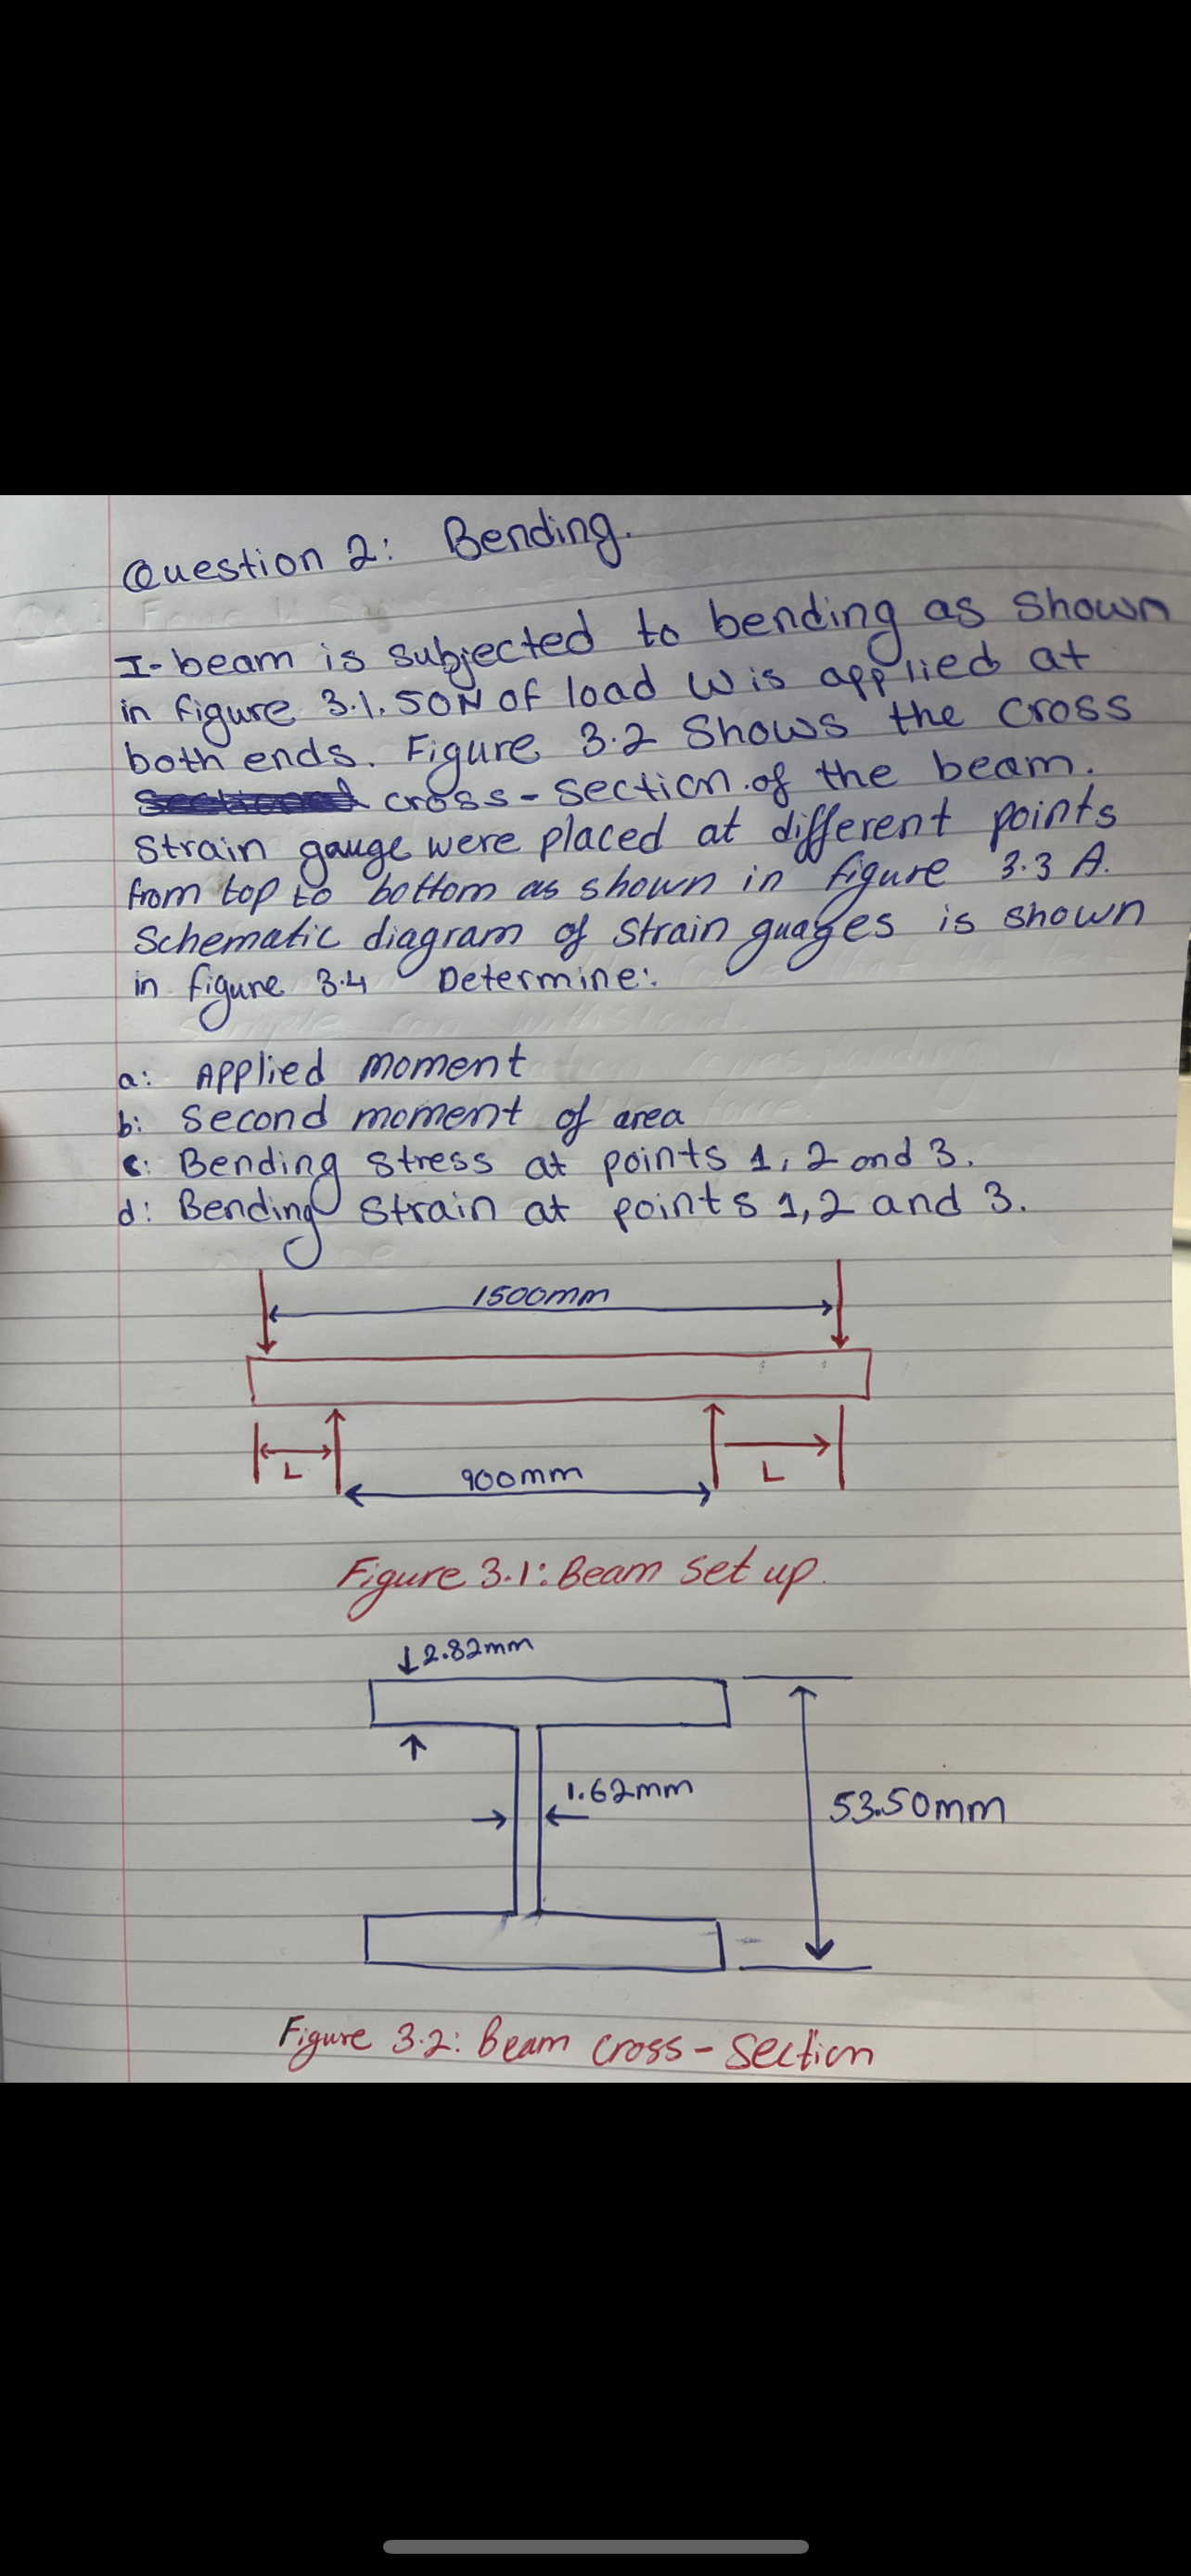 Question 2: Bending.
I-beam is subjected to bending as shown
in figure 3.1. 50N of load W is applied at
both ends. Figure 3.2 Shows the cross
cross-section of the beam.
Strain gauge were placed at different points
from top to bottom as shown in figure 3.3 A.
Schematic diagram of strain guages is shown
in figure 3.4 Determine:
a: Applied moment
b: Second moment of area
c: Bending stress at points 1, 2 and 3.
d: Bending strain at points 1,2 and 3.
1500mm
L
L
900mm
Figure 3.1: Beam set up.
2.82mm
1.62mm
53.50mm
Figure 3.2: Beam cross-section